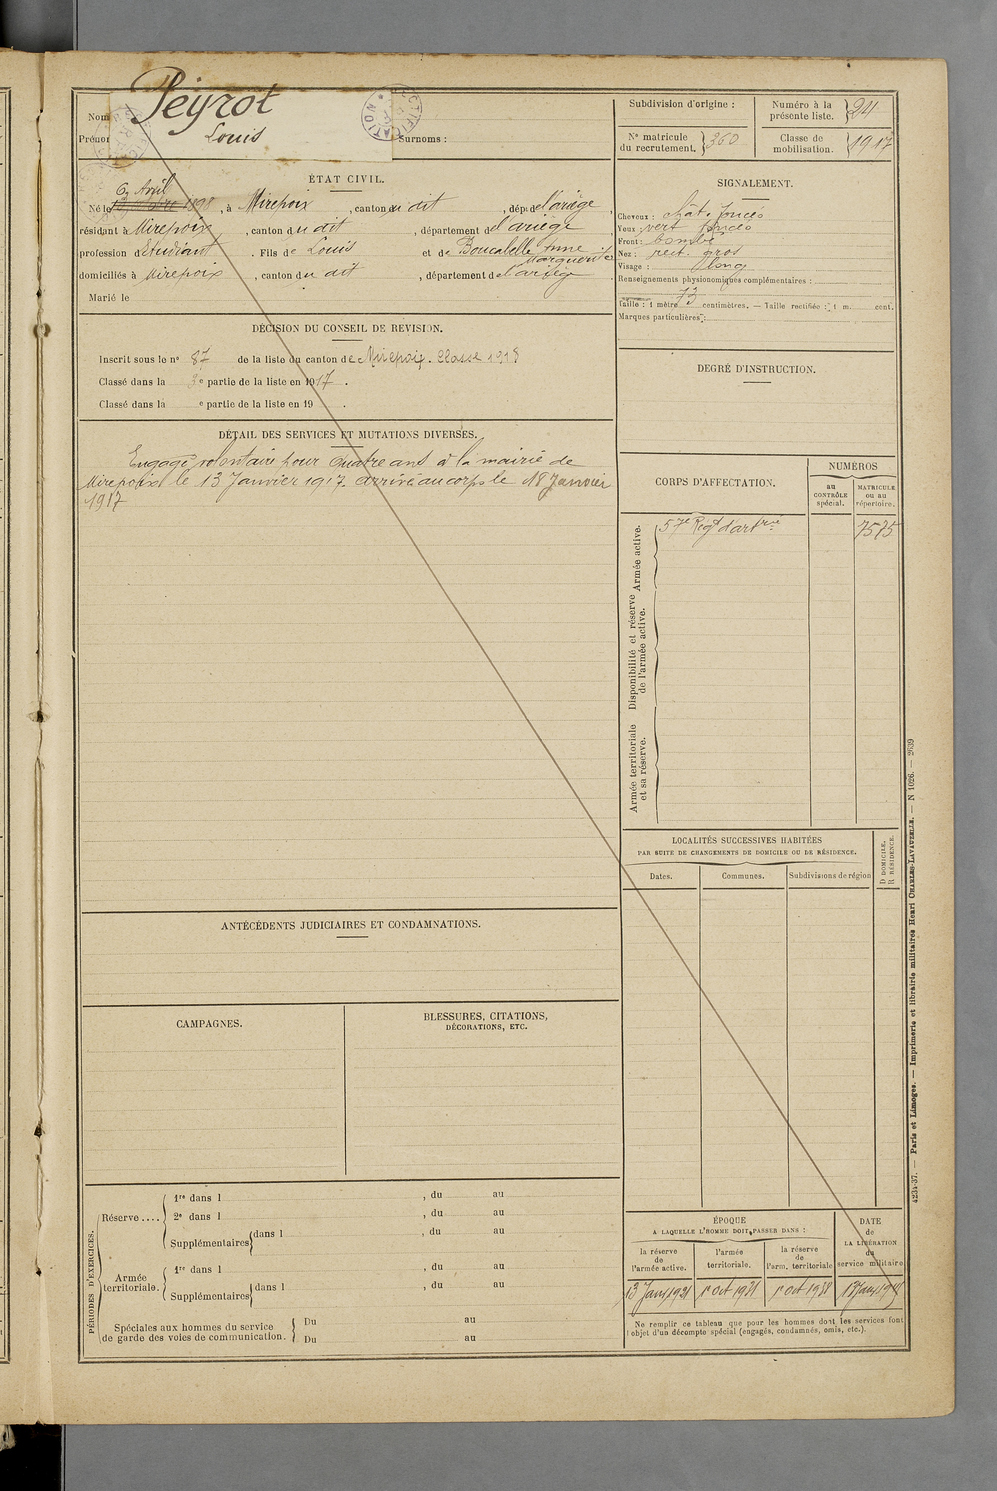 Nom
Peyrot
Prénor
Louis
Surnoms :
RECTIFICATION
Subdivision d'origine :
Numéro à la présente liste. 24
N° matricule du recrutement. 360
Classe de mobilisation. 1917
ÉTAT CIVIL.
6 Avril
Né le 1898, à Mirepoix, canton du dit, dépt de l'ariège,
résidant à Mirepoix, canton du dit, département de l'ariège
profession d'Étudiant. Fils de Louis et de Boucabelle Anne
Marguerite
domiciliés à Mirepoix, canton du dit, département de l'ariège
Marié le
SIGNALEMENT.
Cheveux : chât. foncés
Yeux : vert foncés
Front : bombé
Nez : rect. gros
Visage : long
Renseignements physionomiques complémentaires :
Taille : 1 mètre 73 centimètres. — Taille rectifiée : 1 m. cent.
Marques particulières :
DÉCISION DU CONSEIL DE REVISION.
Inscrit sous le n° 87 de la liste du canton de Mirepoix. Classe 1918
Classé dans la e partie de la liste en 1917.
Classé dans la e partie de la liste en 19 .
DEGRÉ D'INSTRUCTION.
DÉTAIL DES SERVICES ET MUTATIONS DIVERSES.
Engagé volontaire pour quatre ans à la mairie de
Mirepoix le 13 Janvier 1917. Arrivé au corps le 18 Janvier
1917
CORPS D'AFFECTATION.
NUMÉROS
au CONTRÔLE spécial.
MATRICULE ou au répertoire.
Armée active.
57e Régt d'artrie
7575
Disponibilité et réserve de l'armée active.
Armée territoriale et sa réserve.
LOCALITÉS SUCCESSIVES HABITÉES
PAR SUITE DE CHANGEMENTS DE DOMICILE OU DE RÉSIDENCE.
Dates.
Communes.
Subdivisions de région
D DOMICILE.
R RÉSIDENCE.
ANTÉCÉDENTS JUDICIAIRES ET CONDAMNATIONS.
CAMPAGNES.
BLESSURES, CITATIONS,
DÉCORATIONS, ETC.
PÉRIODES D'EXERCICES.
Réserve ....
1re dans l , du au
2e dans l , du au
Supplémentaires dans l , du au
Armée territoriale.
1re dans l , du au
Supplémentaires dans l , du au
Spéciales aux hommes du service de garde des voies de communication.
Du au
Du au
ÉPOQUE
A LAQUELLE L'HOMME DOIT PASSER DANS :
la réserve de l'armée active.
l'armée territoriale.
la réserve de l'arm. territoriale
DATE de LA LIBÉRATION du service militaire
13 Janv 1921
1er Oct 1931
1er Oct 1938
Ne remplir ce tableau que pour les hommes dont les services font
l'objet d'un décompte spécial (engagés, condamnés, omis, etc.).
4234-37. — Paris et Limoges. — Imprimerie et librairie militaires Henri CHARLES-LAVAUZELLE. — N 1026. — 2639